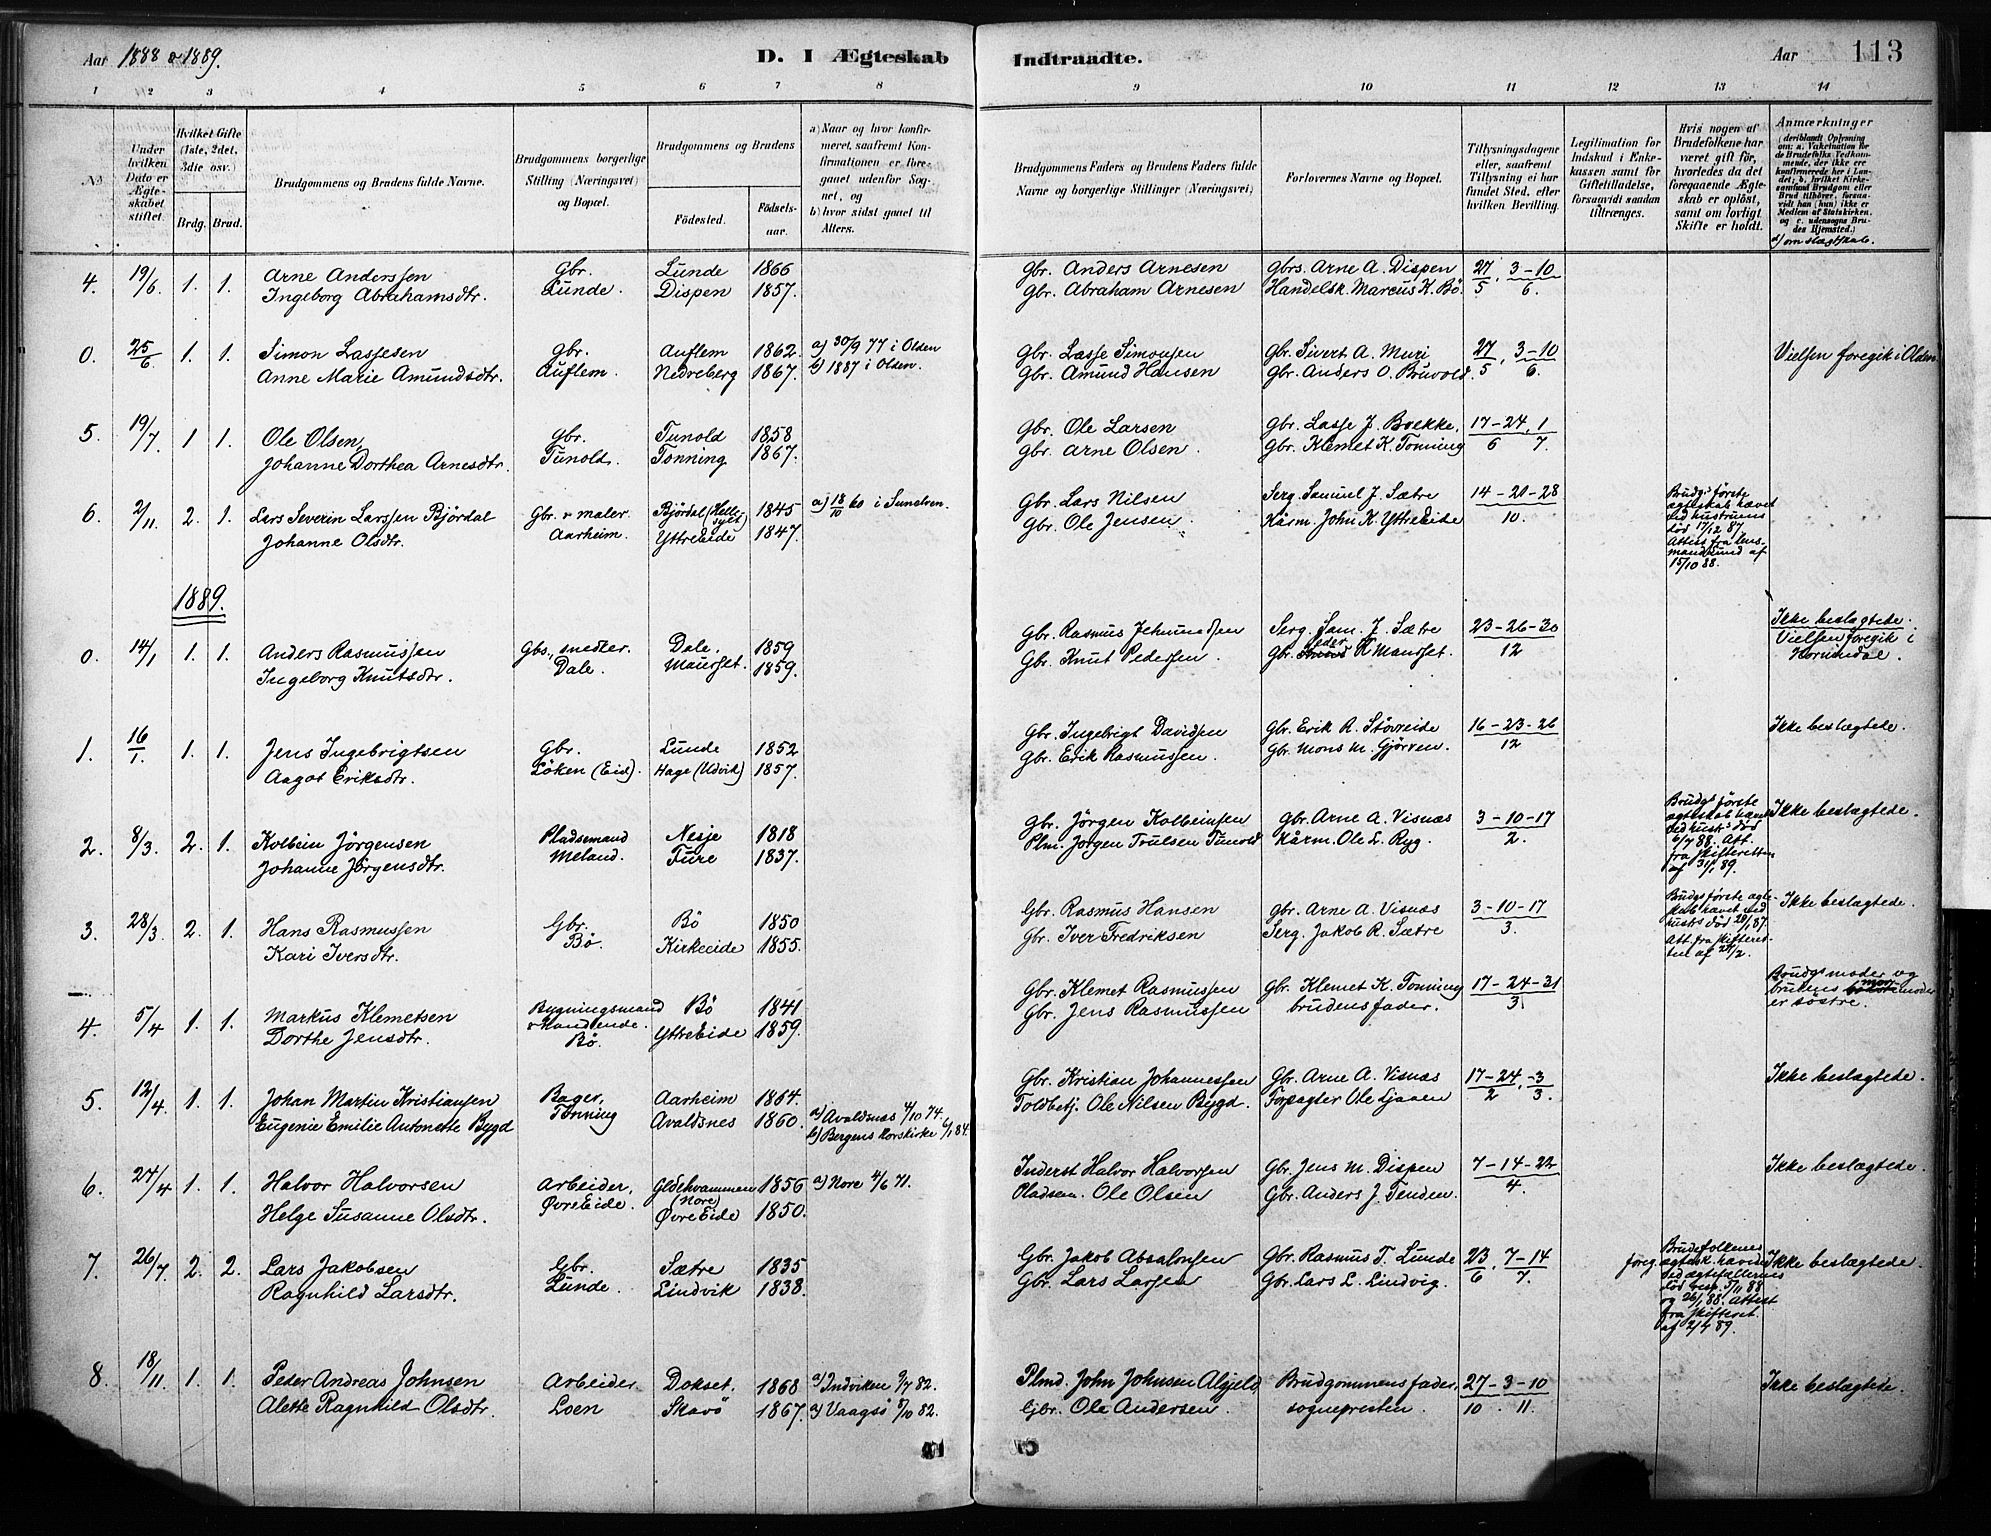 Aar 1888 & 1889.
D. I Ægteskab Indtraadte.
Aar 113
1 2 3 4 5 6 7 8 9 10 11 12 13 14
No
Under hvilken Dato er Ægteskabet stiftet.
Hvilket Gifte (1ste, 2det, 3die osv.)
Brdg. Brud.
Brudgommens og Brudens fulde Navne.
Brudgommens borgerlige Stilling (Næringsvei) og Bopæl.
Brudgommens og Brudens
Födested. Födselsaar.
a) Naar og hvor konfirmeret, saafremt Konfirmationen er foregaaet udenfor Sognet, og
b) hvor sidst gaaet til Alters.
Brudgommens Faders og Brudens Faders fulde Navne og borgerlige Stillinger (Næringsvei)
Forlovernes Navne og Bopæl.
Tillysningsdagene eller, saafremt Tillysning ei har fundet Sted, efter hvilken Bevilling.
Legitimation for Indskud i Enkekassen samt for Giftetilladelse, forsaavidt saadan tiltrænges.
Hvis nogen af Brudefolkene har været gift för, hvorledes da det foregaaende Ægteskab er oplöst, samt om lovligt Skifte er holdt.
Anmærkninger (deriblandt Oplysning om: a. Vakcination for de Brudefolks Vedkommende, der ikke ere konfirmerede her i Landet; b. hvilket Kirkesamfund Brudgom eller Brud tilhörer, forsaavidt han (hun) ikke er Medlem af Statskirken, og c. udensogns Brudes Hjemsted.)
d) om slægtskab.
4. 19/6 1. 1. Arne Anderssen Gbr. Lunde 1866 Gbr. Anders Arnesen Gbrs. Arne A. Dispen 27/5, 3-10/6.
Ingeborg Abrahamsdtr. Lunde. Dispen 1857. Gbr. Abraham Arnesen Handelsk. Marcus K. Bö.
0. 25/6 1. 1. Simon Lassesen Gbr. Auflem 1862. a) 30/9 77 i Olden Gbr. Lasse Simonsen Gbr. Sivert A. Muri 27/5, 3-10/6. Vielsen foregik i Olden
Anne Marie Amundsdtr. Auflem. Nedreberg 1867. b) 1887 i Olden. Gbr. Amund Hansen Gbr. Anders O. Bruvold.
5. 19/7 1 1. Ole Olsen, Gbr. Tunold 1858 Gbr. Ole Larsen Gbr. Lasse J. Brekke, 17-24/6, 1/7.
Johanne Dorthea Arnesdtr. Tunold. Tonning 1867. Gbr. Arne Olsen. Gbr. Klemet K. Tonning
6. 2/11. 2. 1. Lars Severin Larssen Björdal Gbr. & maler. Björdal (Hellesylt) 1845 a) 18/10 60 i Sunelven. Gbr. Lars Nilsen Serg. Samuel J. Sætre 14-21-28/10. Brudg.s förste ægteskab hævet ved hustruens död 17/12 87. Attest fra lensmand Lund af 15/10 88.
Johanne Olsdtr. Aarheim. YttreEide 1847. Gbr. Ole Jensen. Kårm. John K. YttreEide
1889.
0. 14/1 1. 1. Anders Rasmussen Gbs, medler. Dale. 1859 Gbr. Rasmus Jehundsen Serg. Sam. J. Sætre 23-26-30/12 Ikke beslægtede. Vielsen foregik i Hornindal.
Ingeborg Knutsdtr. Dale. Maurset. 1859. Gbr. Knut Pedersen. Gbr. Peder K Maurset.
1. 16/1. 1. 1. Jens Ingebrigtsen Gbr. Lunde 1852 Gbr. Ingebrigt Davidsen Gbr. Erik R. Störreide 16-23-26/12 Ikke beslægtede.
Aagot Eriksdtr. Löken (Eid). Hage (Udvik) 1857. Gbr. Erik Rasmussen. Gbr. Mons M. Gjörven.
2. 8/3. 2. 1. Kolbein Jörgensen Pladsemand Nesje 1818 Gbr. Jörgen Kolbeinsen Gbr. Arne A. Visnæs 3-10-17/2. Brudgs förste ægteskab hævet ved hust.s död 6/7 88. Att. fra skifteretten af 31/1 89. Ikke beslægtede.
Johanne Jörgensdtr. Meland. Fure 1837. Plm. Jörgen Trulsen Tunold Kårm. Ole L. Ryg.
3. 28/3. 2. 1. Hans Rasmussen Gbr. Bö 1850 Gbr. Rasmus Hansen Gbr. Arne A. Visnæs 3-10-17/3. Brudgs förste ægteskab hævet ved hustrs död 20/1 87. Att. fra skifteretten af 27/2. Ikke beslægtede.
Kari Iversdtr. Bö. Kirkeeide 1855. Gbr. Iver Fredriksen Serg. Jakob R. Sætre
4. 5/4 1. 1. Markus Klemetsen Bygningsmand & Handlende. Bö 1841 Gbr. Klemet Rasmussen Gbr. Klemet K. Tonning 17-24-31/3. Brudgs moder og brudens mormoder er söstre.
Dorthe Jensdtr. Bö. YttreEide 1859. Gbr. Jens Rasmussen brudens fader.
5. 12/4 1. 1. Johan Martin Kristiansen Bager, Aarheim 1864. Gbr. Kristian Johannessen Gbr. Arne A. Visnæs 17-24/2, -3/3. Ikke beslægtede.
Eugenie Emilie Antonette Bygd Tonning Avaldsnes 1860. a) Avaldsnæs 4/10 74. b) Bergens Korskirke 6/1 84. Toldbetj. Ole Nilsen Bygd. Forpagter Ole Ljaaen
6. 24/4 1. 1. Halvor Halvorsen Arbeider, Gldehvammen (Nore) 1856 a) Nore 4/6 71. Inderst Halvor Halvorsen Gbr. Jens M. Dispen 7-14-22/4. Ikke beslægtede.
Helge Susanne Olsdtr. ØvreEide. ØvreEide 1850. Pladsem. Ole Olsen Gbr. Anders J. Tenden.
7. 26/7 2. 2. Lars Jakobsen Gbr. Sætre 1835 Gbr. Jakob Absalonsen Gbr. Rasmus T. Lunde 23/6, 7-14/7. Brudefolkenes foreg. ægtesk. hævede ved ægtefællernes död resp. 5/11 88 og 26/1 88. Attest fra skifteret. af 2/4 89. Ikke beslægtede.
Ragnhild Larsdtr. Lunde Lindvik 1838. Gbr. Lars Larsen Gbr. Lars L. Lindvig.
8. 18/11. 1. 1. Peder Andreas Johnsen Arbeider Dokset. 1868 a) Indviken 9/7 82. Plmd. John Johnsen Alsjeld Brudgommens fader, 27/10-3-10/11. Ikke beslægtede.
Alette Ragnhild Olsdtr. Loen Skavö 1867. a) Vaagsö 8/10 82. Gbr. Ole Andersen. sognepresten.